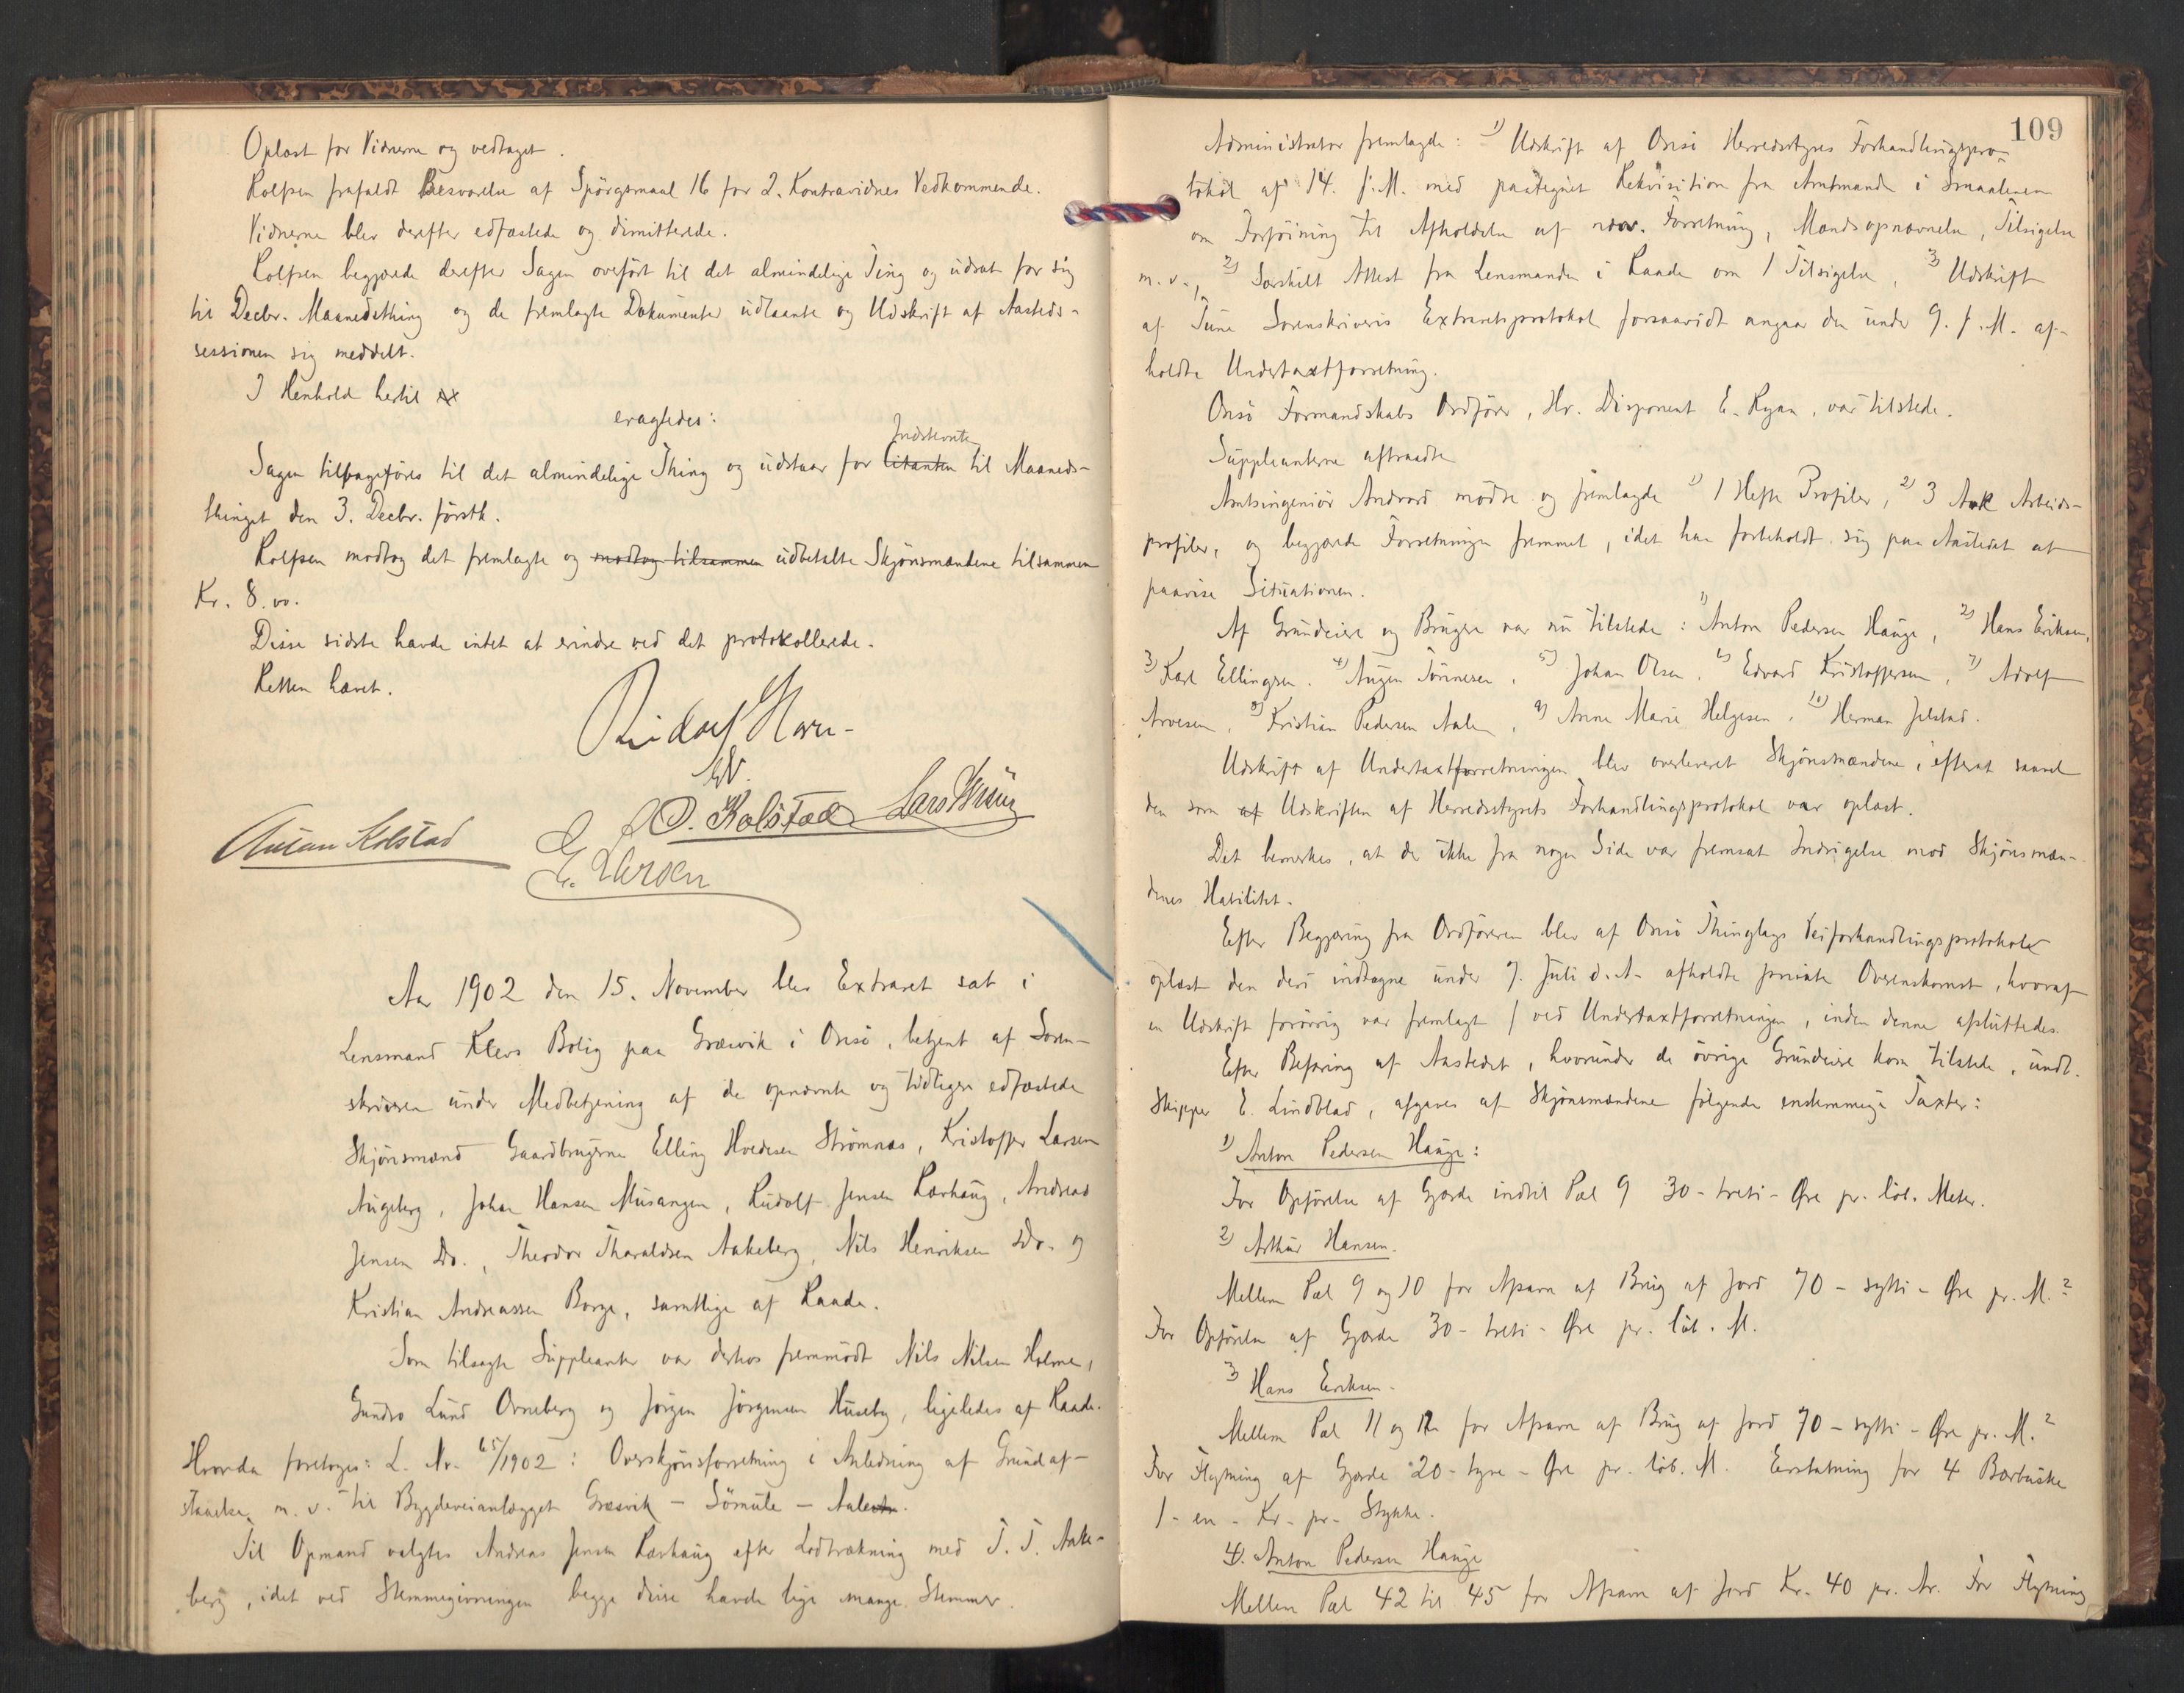 Oplæst for Vidnerne og vedtaget.
Rolfsen frafaldt Besvarelse af Spörgsmaal 16 for 2. Kontravidnes Vedkommende.
Vidnerne blev derefter edfæstede og dimitterede.
Rolfsen begjærede derefter Sagen overfört til det almindelige Ting og udsat for sig
til Decbr. Maanedsthing og de fremlagte Dokumenter udlaante og Udskrift af Aasteds-
sessionen sig meddelt.
I Henhold hertil
eragtedes:
Indstevnte
Sagen tilbageföres til det almindelige Thing og udstaar for Citanten til Maaneds-
thinget den 3. Decbr. förstk.
Rolfsen modtog det fremlagte og modtog tilsammen udbetalte Skjönsmændene tilsammen
Kr. 8.00.
Disse sidste havde intet at erindre ved det protokollerede.
Retten hævet.
Rudolf Horn
O. Kolstad Lars
Anton Kolstad
E. Larsen
Aar 1902 den 15. November blev Extraret sat i
Lensmand Klevs Bolig paa Græsvik i Onsö, betjent af Soren-
skriveren under Medbetjening af de opnævnte og tidligere edfæstede
Skjönsmænd Gaardbrugerne Elling Hvedesen Strömnæs, Kristoffer Larsen
Augeberg, Johan Hansen Musangen, Rudolf Jensen Karlhaug, Andreas
Jensen Do., Theodor Tharaldsen Aakeberg, Nils Henriksen Do. og
Kristian Andreassen Borge, samtlige af Raade.
Som tilsagte Suppleanter var derhos fremmödt Nils Nilsen Holme,
Gundro Lund Ovneberg og Jörgen Jörgensen Huseby, ligeledes af Raade.
Hvorda foretoges: L. Nr. 65/1902: Overskjönsforretning i Anledning af Grundaf-
staaelse m. v. til Bygdeveianlægget Græsvik - Sömule - Aale.
Til Opmand valgtes Andreas Jensen Karlhaug efter Lodtrækning med T. T. Aake-
berg, idet ved Stemmegivningen begge disse havde lige mange Stemmer.
109
Administrator fremlagde: 1) Udskrift af Onsö Herredsstyres Forhandlingspro-
tokol af 14. f. M. med paategnet Rekvisition fra Amtmanden i Smaalenene
om Forföining til Afholdelse af nærv. Forretning, Mandsopnævnelse, Tilsigelse
m. v., 2) Særskilt Attest fra Lensmanden i Raade om 1 Tilsigelse, 3) Udskrift
af Tune Sorenskriveris Extraretsprotokol forsaavidt angaar den under 9. f. M. af-
holdte Undertaxtforretning.
Onsö Formandskabs Ordförer, Hr. Disponent E. Ryan, var tilstede.
Suppleanterne aftraadte
Amtsingeniör Andvord mödte og fremlagde 1) 1 Hefte Profiler, 2) 3 Ark Arbeids-
profiler, og begjærede Forretningen fremmet, idet han forbeholdt sig paa Aastedet at
paavise Situationen.
Af Grundeiere og Brugere var nu tilstede: 1) Anton Pedersen Hauge, 2) Hans Eriksen,
3) Karl Ellingsen, 4) Augen Tönnesen, 5) Johan Olsen, 6) Edvard Kristoffersen, 7) Adolf
Arvesen, 8) Kristian Pedersen Aale, 9) Anne Marie Helgesen, 10) Herman Jelstad.
Udskrift af Undertaxtforretningen blev overleveret Skjönsmændene, efterat saavel
den som af Udskriften af Herredsstyrets Forhandlingsprotokol var oplæst.
Det bemerkes, at der ikke fra nogen Side var fremsat Indsigelse mod Skjönsmæn-
denes Habilitet.
Efter Begjæring fra Ordföreren blev af Onsö Thinglags Veiforhandlingsprotokol
oplæst den deri indtagne under 7. Juli d. A. afholdte private Overenskomst, hvoraf
en Udskrift forövrig var fremlagt ved Undertaxtforretningen, inden denne afsluttedes.
Efter Befaring af Aastedet, hvorunder de övrige Grundeiere kom tilstede, undt.
Skipper E. Lindblad, afgaves af Skjönsmændene fölgende enstemmige Taxter:
1) Anton Pedersen Hauge:
For Opförelse af Gjærde indtil Pæl 9 30 - treti - Øre pr. löb. Meter.
2) Arthur Hansen.
Mellem Pæl 9 og 10 for Afsavn af Brug af Jord 70 - sytti - Øre pr. M.2
For Opförelse af Gjærde 30 - treti - Øre pr. löb. M.
3) Hans Eriksen.
Mellem Pæl 11 og 12 for Afsavn af Brug af Jord 70 - sytti - Øre pr. M.2
For Flytning af Gjærde 20 - tyve - Øre pr. löb. M. Erstatning for 4 Bærbuske
1 - en - Kr. pr. Stykke.
4). Anton Pedersen Hauge
Mellem Pæl 42 til 45 for Afsavn af Jord Kr. 40 pr. Ar. For Flytning